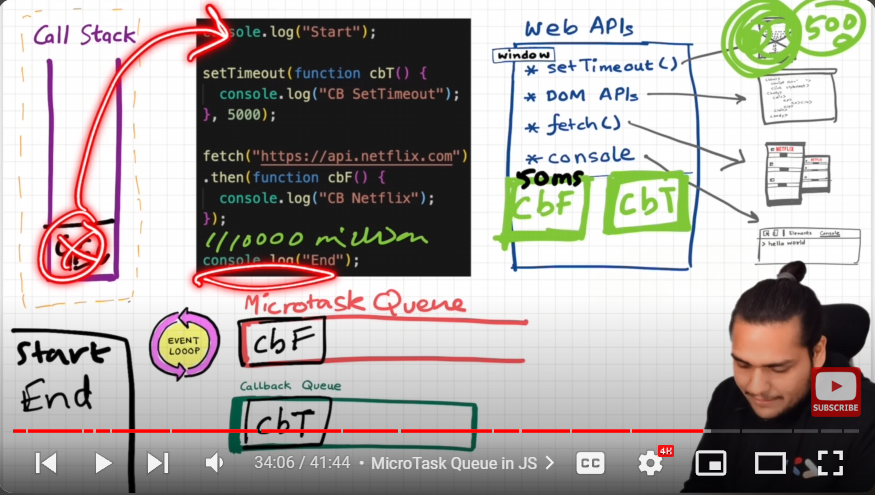 Call Stack
console.log("Start");
setTimeout(function cbT() {
console.log("CB SetTimeout");
}, 5000);
fetch("https://api.netflix.com")
.then(function cbF() {
console.log("CB Netflix");
});
million
console.log("End");
Web APIs
window
* setTimeout()
* DOM APIs
* fetch()
* console
50ms
cbF
cbT
500
NETFLIX
Elements Console
> hello world
Microtask Queue
cbF
EVENT
LOOOP
Callback Queue
cbT
Start
End
SUBSCRIBE
34:06 / 41:44 • MicroTask Queue in JS >
CC
4K